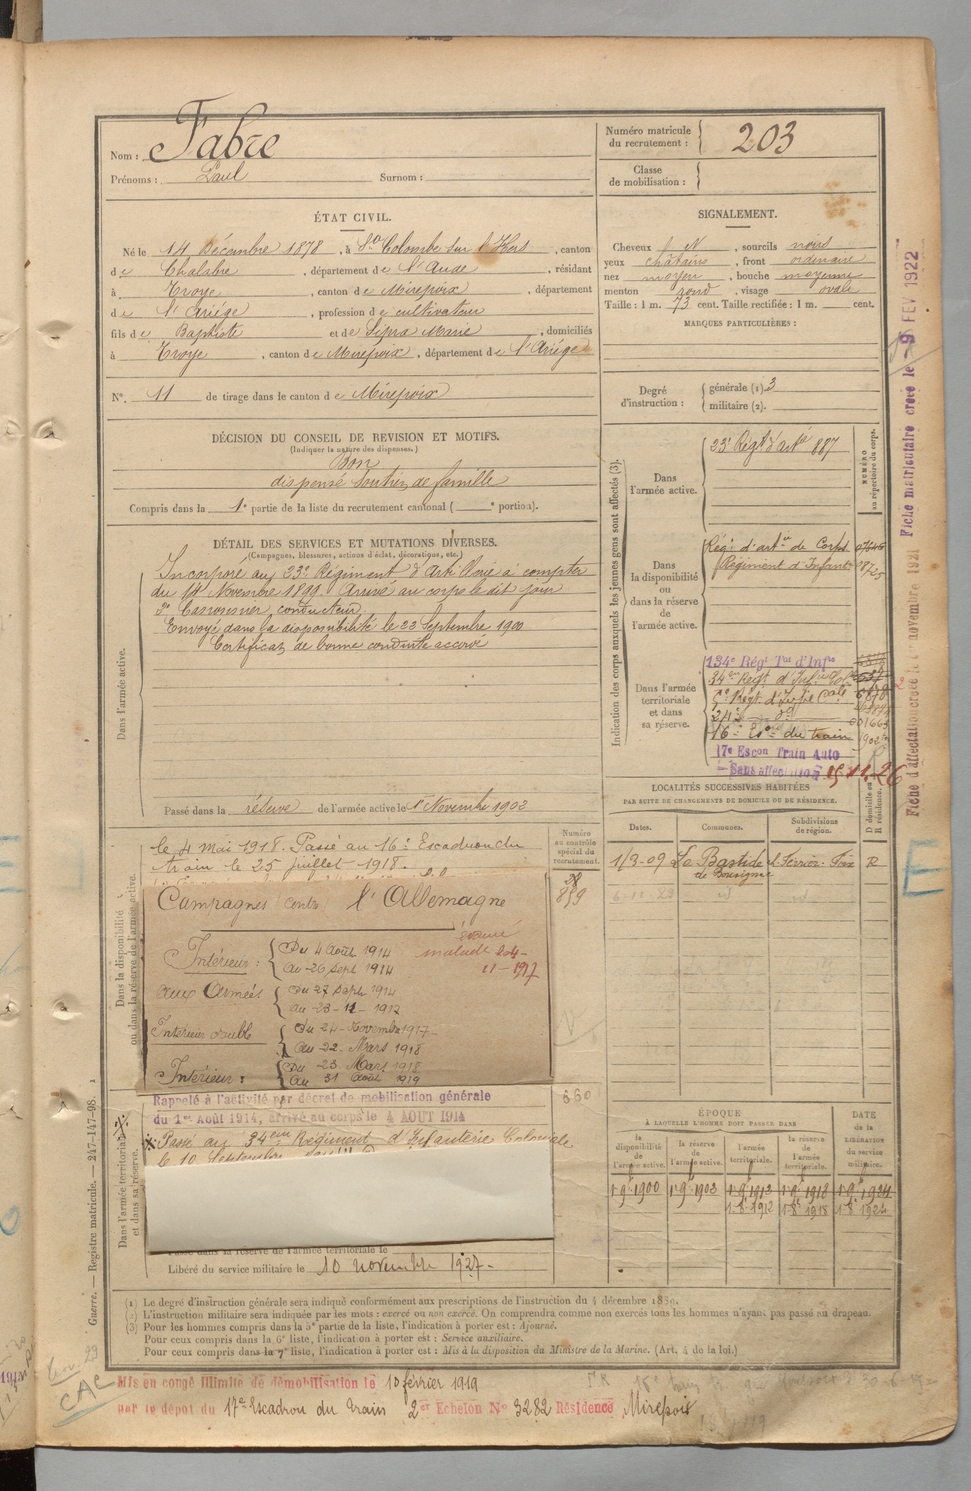 Nom : Fabre
Prénoms : Paul Surnom :
Numéro matricule
du recrutement : 203
Classe
de mobilisation :
ÉTAT CIVIL.
Né le 14 Décembre 1878, à Ste Colombe sur l'Hers, canton
de Chalabre, département de l'Aude, résidant
à Troye, canton de Mirepoix, département
de l'Ariége, profession de cultivateur
fils de Baptiste et de Sepra Marie, domiciliés
à Troye, canton de Mirepoix, département de l'Ariége
N°. 11 de tirage dans le canton de Mirepoix
SIGNALEMENT.
Cheveux N, sourcils noirs
yeux châtains, front ordinaire
nez moyen, bouche moyenne
menton rond, visage ovale
Taille : 1 m. 73 cent. Taille rectifiée : 1 m. cent.
MARQUES PARTICULIÈRES :
Degré
d'instruction :
générale (1). 3
militaire (2).
DÉCISION DU CONSEIL DE REVISION ET MOTIFS.
(Indiquer la nature des dispenses.)
Bon
dispensé soutien de famille
Compris dans la 1e partie de la liste du recrutement cantonal ( e portion).
DÉTAIL DES SERVICES ET MUTATIONS DIVERSES.
(Campagnes, blessures, actions d'éclat, décorations, etc.)
Dans l'armée active.
Incorporé au 23e Régiment d'Artillerie à compter
du 14 Novembre 1899. Arrivé au corps le dit jour
2e Canonnier conducteur.
Envoyé dans la disponibilité le 22 Septembre 1900
Certificat de bonne conduite accordé
Passé dans la réserve de l'armée active le 1er Novembre 1902
Indication des corps auxquels les jeunes gens sont affectés (3).
NUMÉRO
au répertoire du corps.
Dans
l'armée active.
23e Régt d'artie 887
Dans
la disponibilité
ou
dans la réserve
de
l'armée active.
Régt d'artie de Corps
Régiment d'Infant
Dans l'armée
territoriale
et dans
sa réserve.
134e Régt Tal d'Infie
34e Régt d'Infie Col
5e Régt d'Infie Cale
34e do
16e Eson du train
17e Escon Train Auto
Sans affectation 15.11.26
Fiche matriculaire créée le 9 FEV 1922
Fiche d'affectation créée le 1er novembre 1921
LOCALITÉS SUCCESSIVES HABITÉES
PAR SUITE DE CHANGEMENTS DE DOMICILE OU DE RÉSIDENCE.
D domicile ou
R résidence.
Dates. Communes. Subdivisions
de région.
1/3-09 La Bastide Foix R
de Bousignac
Dans la disponibilité
ou dans la réserve de l'armée active.
Numéro
au contrôle
spécial du
recrutement.
859
le 4 Mai 1918. Passé au 16e Escadron du
train le 25 juillet 1918.
Campagnes contre l'Allemagne
Intérieur : Du 4 Août 1914
au 26 Sept 1914
évacué
malade le 24-
11-1917
Aux Armées Du 27 Sept 1914
au 23-11-1917
Intérieur doublé Du 24-Novembre 1917-
au 22-Mars 1918
Intérieur : Du 23 Mars 1918
au 31 Août 1919
Dans l'armée territoriale
et dans sa réserve.
660
Rappelé à l'activité par décret de mobilisation générale
du 1er Août 1914, arrivé au corps le 4 AOUT 1914
Passé au 34eme Régiment d'Infanterie Coloniale
le 10 Septembre
Passé dans la réserve de l'armée territoriale le
Libéré du service militaire le 10 novembre 1927-
ÉPOQUE
À LAQUELLE L'HOMME DOIT PASSER DANS
DATE
de la
LIBÉRATION
du service
militaire.
la
disponibilité
de
l'armée active.
la réserve
de
l'armée active.
l'armée
territoriale.
la réserve
de
l'armée
territoriale.
1er 9e 1900 1er 9e 1903 1er 9e 1913 1er 9e 1918 1er 9e 1924
1er 8e 1912 1er 8e 1918 1er 8e 1924
Guerre. — Registre matricule. — 247-147-98.
(1) Le degré d'instruction générale sera indiqué conformément aux prescriptions de l'instruction du 4 décembre 1889.
(2) L'instruction militaire sera indiquée par les mots : exercé ou non exercé. On comprendra comme non exercés tous les hommes n'ayant pas passé au drapeau.
(3) Pour les hommes compris dans la 5e partie de la liste, l'indication à porter est : Ajourné.
Pour ceux compris dans la 6e liste, l'indication à porter est : Service auxiliaire.
Pour ceux compris dans la 7e liste, l'indication à porter est : Mis à la disposition du Ministre de la Marine. (Art. 4 de la loi.)
CAC
Mis en congé illimité de démobilisation le 10 février 1919
par le dépôt du 17e Escadron du Train 2er Echelon N° 3282 Résidence Mirepoix